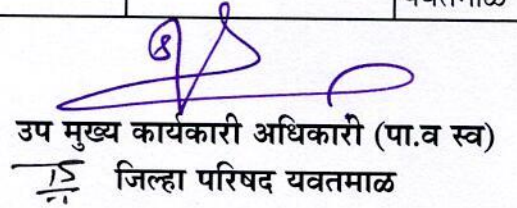 यवतमाळ
उप मुख्य कार्यकारी अधिकारी (पा.व स्व)
जिल्हा परिषद यवतमाळ